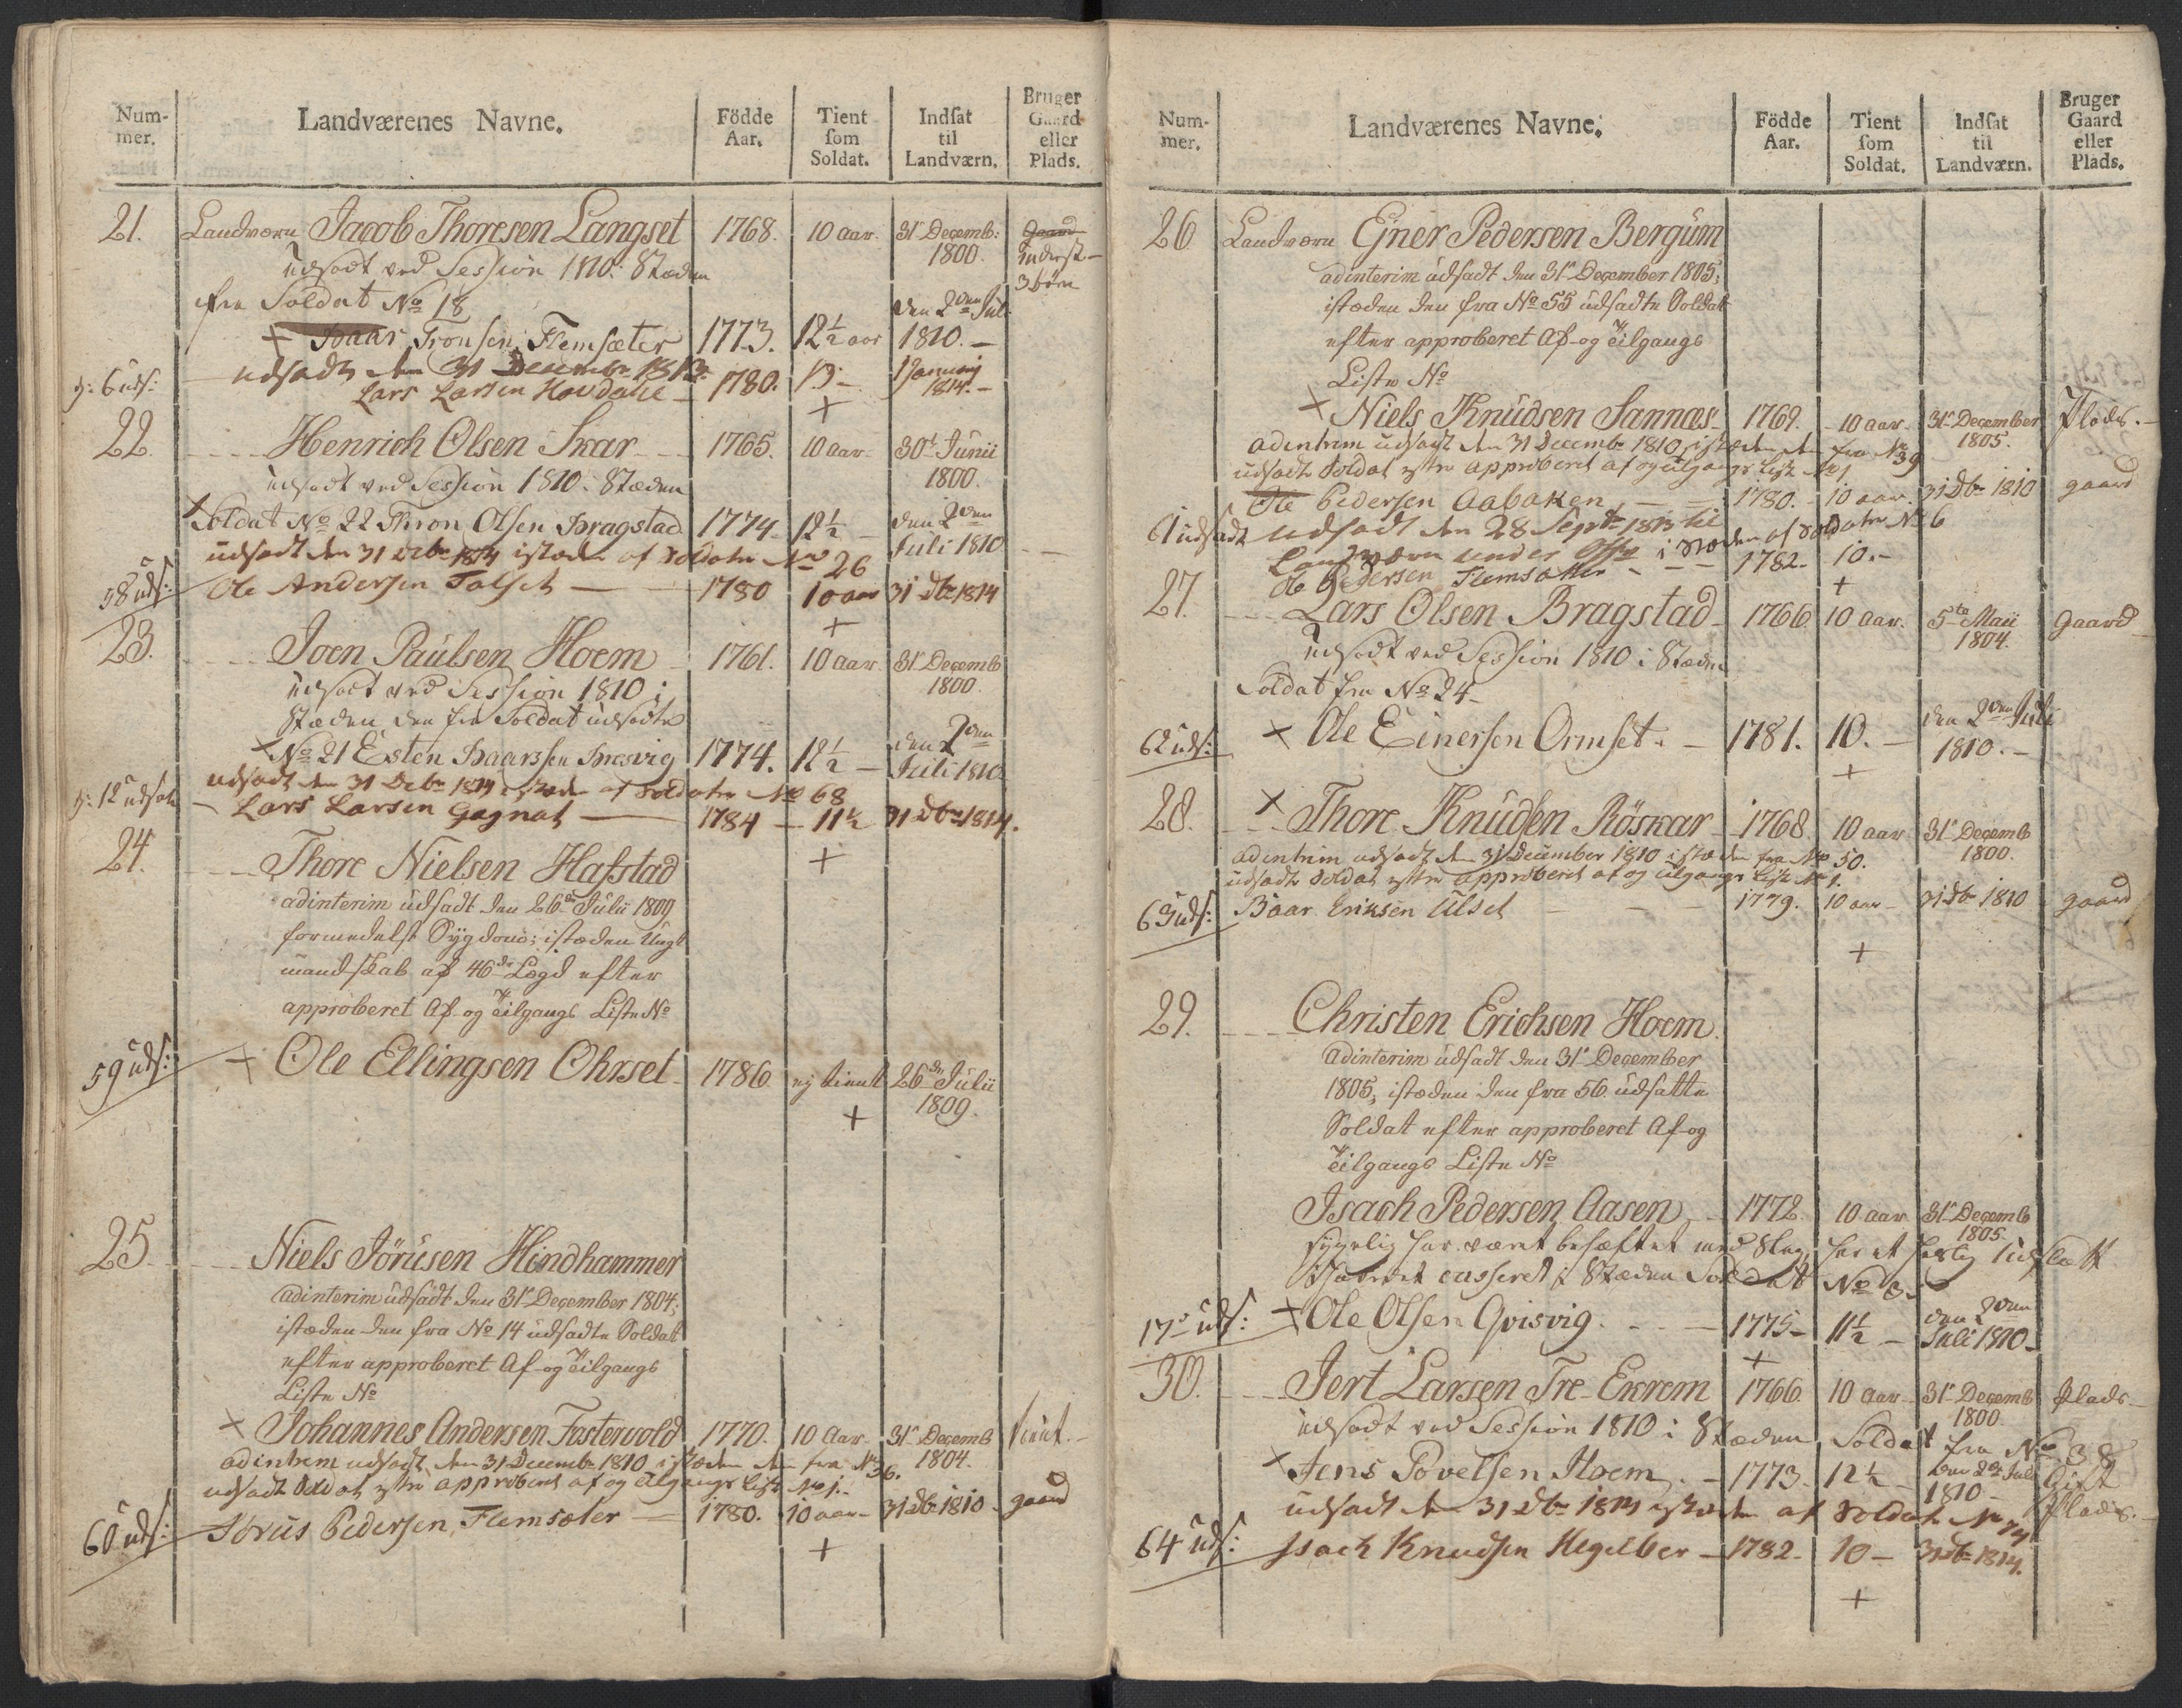 Num-
mer.
Landværenes Navne.
Födde
Aar.
Tient
som
Soldat.
Indsat
til
Landværn.
Bruger
Gaard
eller
Plads.
21. Landværn Jacob Thoresen Langset 1768. 10 aar. 31 Decemb: 1800. Gaard
Inderst
3 börn
udsadt ved Session 1810 i Stæden
fra Soldat No 18
+ Baar Tronsen Flemsæter 1773. 12½ aar den 2den Juli 1810.
udsadt den 31 December 1813
6 uds: Lars Larsen Hovdahl 1780. 13 - 1 January 1814. -
+
22. Henrich Olsen Skar 1765. 10 aar 30t Junii 1800.
udsadt ved Session 1810 i Stæden
+ Soldat No 22 Thron Olsen Bragstad 1774 12½ den 2den Juli 1810
udsadt den 31 Decbr 1814 istæden af Soldater No 26
58 uds: Ole Andersen Talset 1780 10 aar 31 Dbr 1814
+
23. Joen Paulsen Hoem 1761. 10 aar 31 Decemb 1800.
udsadt ved Session 1810 i
Stæden den fra Soldat udsadte
+ No 21 Esten Baarssen Bresvig 1774. 12½ den 2den Juli 1810
udsadt den 31 Decbr 1814 istæden af Soldater No 68
12 udsat Lars Larsen Gagnat 1784 11½ 31 Dbr 1814.
+
24. Thore Nielsen Hafstad
adinterim udsadt den 26de Julii 1809
formedelst Sygdom; istæden Ungt
mandskab af 46de Lægd efter
approberet Af- og Tilgangs Liste No
59 uds: + Ole Ellingsen Ohrset 1786. ej tient 26de Julii 1809.
+
25. Niels Jörüsen Hindhammer
adinterim udsadt den 31 December 1804,
istæden den fra No 14 udsadte Soldat
efter approberet Af- og Tilgangs
Liste No
+ Johannes Andersen Fostervold 1770. 10 Aar 31 Decemb 1804. tient.
adintrem udsadt den 31 Decembr 1810 istæden den fra No 36.
udsadt Soldat efter approberet af og tilgangs Liste No 1.
60 uds: Jörüs Pedersen Flemsæter 1780. 10 aar 31 Dbr 1810 gaard
+
Num-
mer.
Landværenes Navne.
Födde
Aar.
Tient
som
Soldat.
Indsat
til
Landværn.
Bruger
Gaard
eller
Plads.
26 Landværn Ejner Pedersen Bergüm
adinterim udsadt den 31 December 1805,
istæden den fra No 55 udsadte Soldat
efter approberet Af- og Tilgangs
Liste No
+ Niels Knüdsen Sannæs 1769. 10 aar 31 December 1805. Plads.
adintrem udsadt den 31 Decembr 1810 istæden den fra No 39
udsadt Soldat efter approberet af og tilgangs Liste No 1.
Ole Pedersen Aabaken 1780. 10 aar. 31 Dbr 1810 gaard
61 udsadt udsadt den 28 Septbr 1813 til
Landværn under i Stæden af Soldater No 6
Ole Pedersen Flemsæter 1782. 10.-
+
27. Lars Olsen Bragstad 1766 10 aar. 5te Maii 1804. Gaard
udsadt ved Session 1810 i Stæden
Soldat fra No 24
62 uds: + Ole Einersen Ormset. 1781. 10. - den 2den Juli 1810. -
+
28. + Thore Knüdsen Röskar 1768. 10 aar 31 Decemb 1800.
adintrim udsadt den 31 December 1810 istæden fra No 50.
udsadt Soldat efter approberet af og tilgangs Liste No 1.
63 uds: Baar Eriksen Ulset 1779. 10 aar 31 Dbr 1810 gaard
+
29. Christen Erichsen Hoem.
adinterim udsadt den 31 December
1805, istæden den fra 56 udsatte
Soldat efter approberet Af- og
Tilgangs Liste No
Isach Pedersen Aasen 1772. 10 aar 31 Decemb 1805.
sygelig har været behæftet med Slag, har et Udslætt
casseret i Stæden Soldat No 8
17 uds: + Ole Olsen Gvisvig. 1775 11½ den 2den Juli 1810
+
30. Jert Larsen Tre-Ekrem 1766. 10 aar 31 Decemb 1800. Plads
udsadt ved Session 1810 i Stæden Soldat fra No 38
+ Jens Povelsen Hoem 1773. 12½ den 2den Juli 1810 Gift Plads.
udsadt den 31 Dbr 1814 istæden af Soldat No 74
64 uds: Isach Knudsen Hegelber 1782 10 31 Dbr 1814.
+